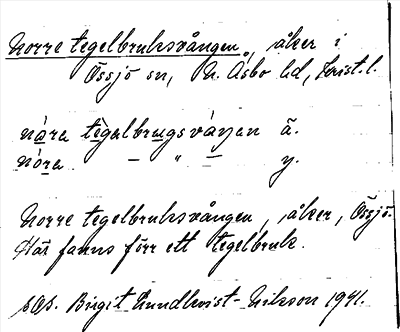 Norre tegelbruksvången, åker i
Össjö sn, N. Åsbo hd, Krist. l.
nȧra tegalbrugsváŋen ä.
nȯra — " — y.
Norre tegelbruksvången, åker, Össjö.
Här fanns förr ett tegelbruk.
Birgit Lundkvist-Nilsson 1941.